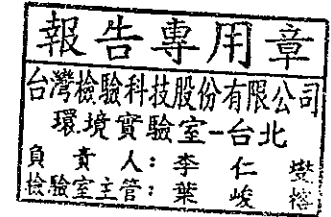 報告專用章
台灣檢驗科技股份有限公司
環境實驗室-台北
負責人：李仁
檢驗室主管：葉峻榕